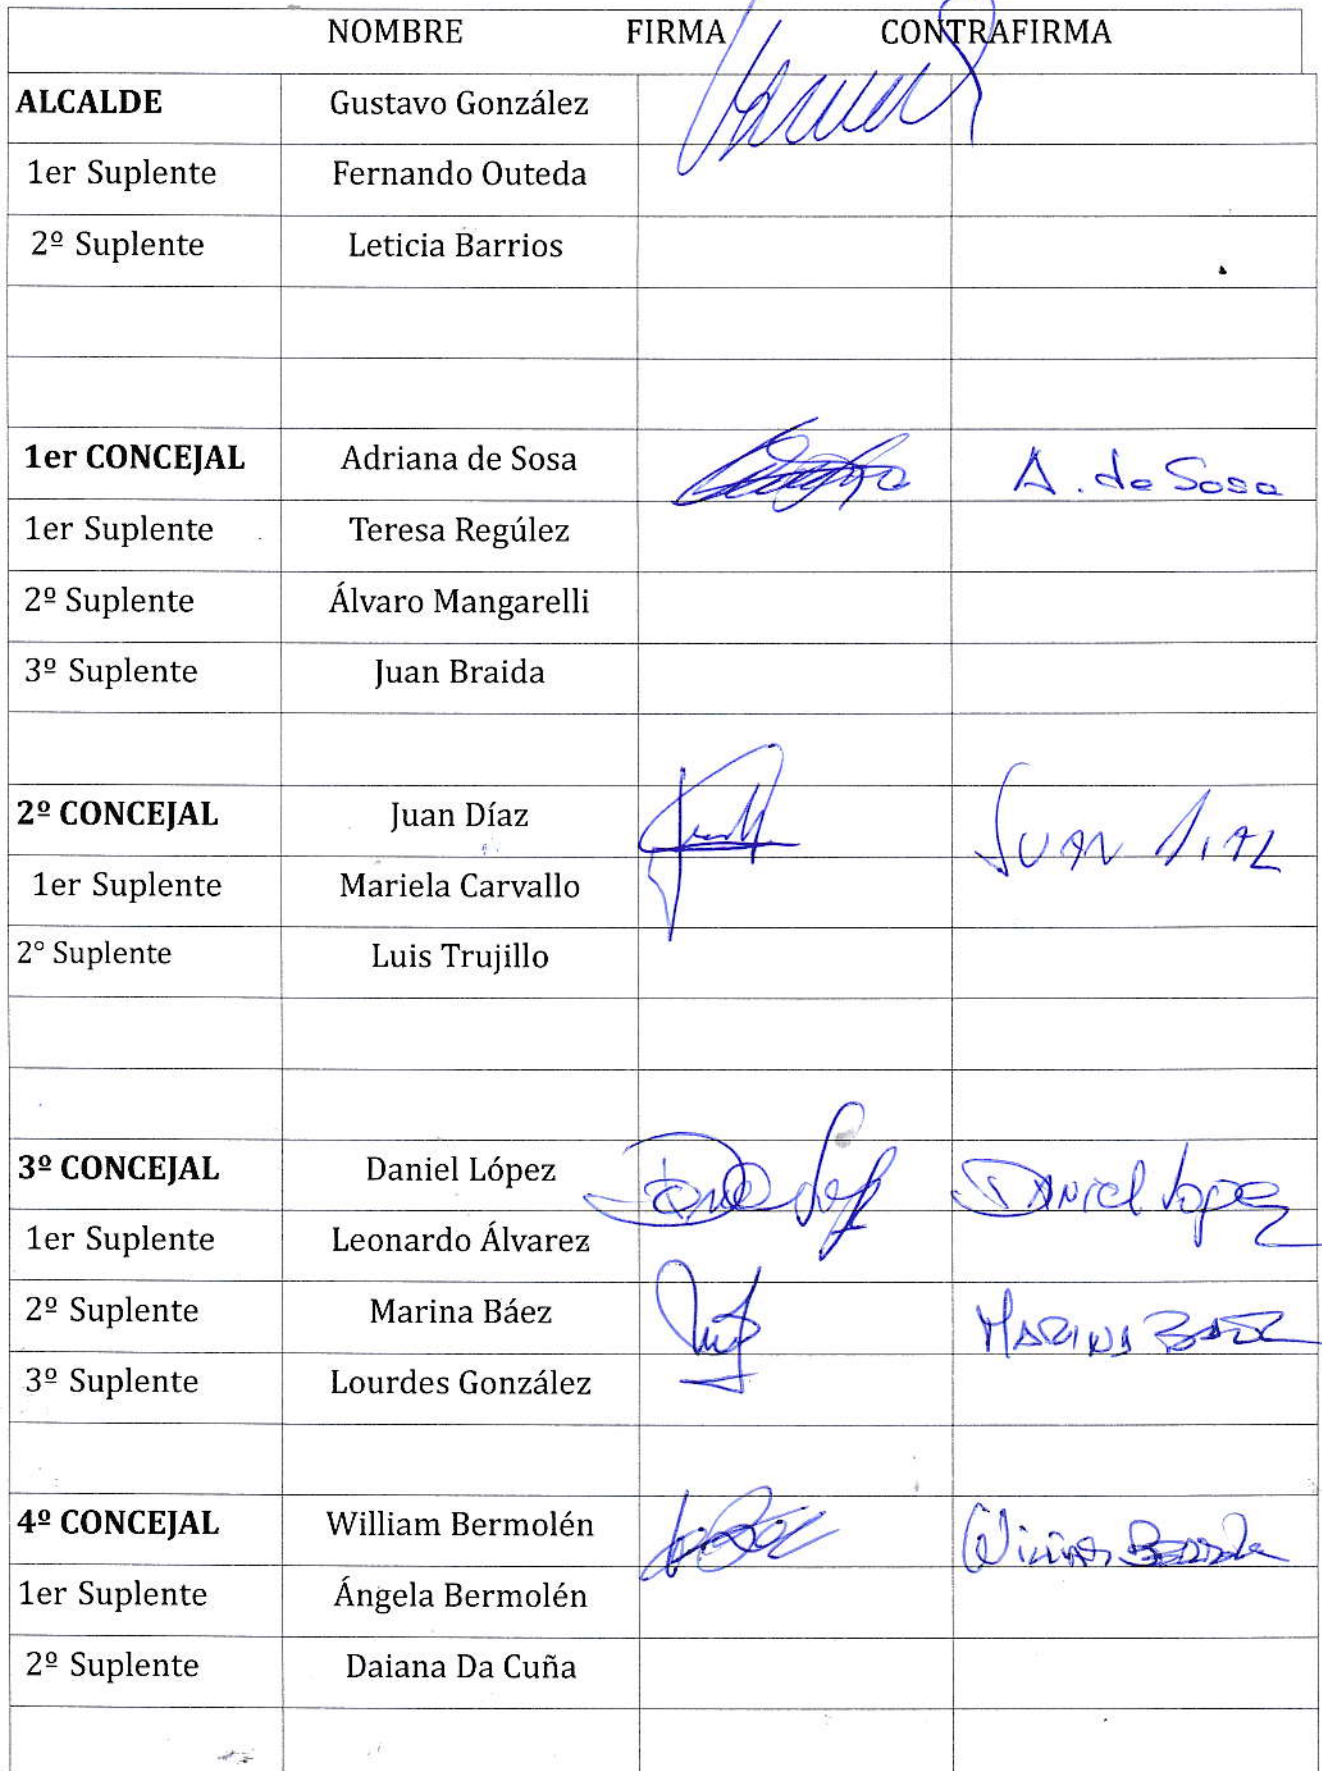 NOMBRE FIRMA CONTRAFIRMA
ALCALDE Gustavo González
1er Suplente Fernando Outeda
2º Suplente Leticia Barrios
1er CONCEJAL Adriana de Sosa A. de Sosa
1er Suplente Teresa Regúlez
2º Suplente Álvaro Mangarelli
3º Suplente Juan Braida
2º CONCEJAL Juan Díaz JUAN DIAZ
1er Suplente Mariela Carvallo
2° Suplente Luis Trujillo
3º CONCEJAL Daniel López DANIEL Lopez
1er Suplente Leonardo Álvarez
2º Suplente Marina Báez MARINA BAEZ
3º Suplente Lourdes González
4º CONCEJAL William Bermolén
1er Suplente Ángela Bermolén
2º Suplente Daiana Da Cuña